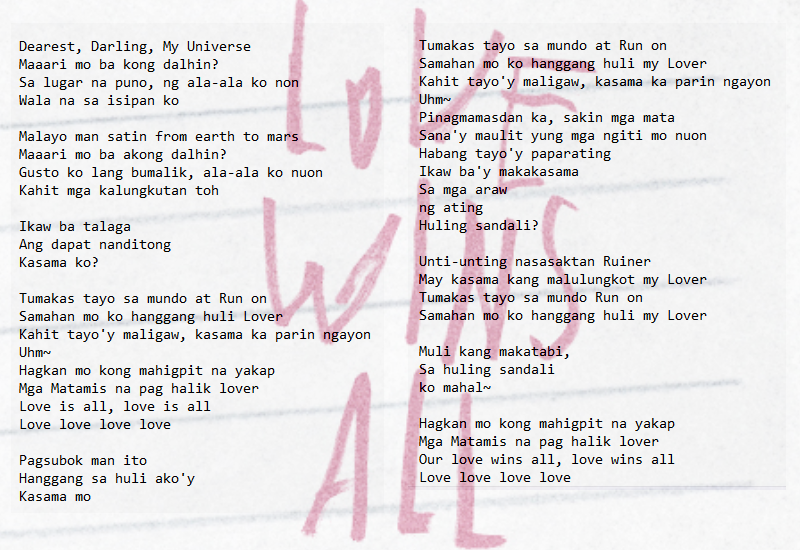 LOVE
WINS
ALL
Dearest, Darling, My Universe
Maaari mo ba kong dalhin?
Sa lugar na puno, ng ala-ala ko non
Wala na sa isipan ko
Malayo man satin from earth to mars
Maaari mo ba akong dalhin?
Gusto ko lang bumalik, ala-ala ko nuon
Kahit mga kalungkutan toh
Ikaw ba talaga
Ang dapat nanditong
Kasama ko?
Tumakas tayo sa mundo at Run on
Samahan mo ko hanggang huli Lover
Kahit tayo'y maligaw, kasama ka parin ngayon
Uhm~
Hagkan mo kong mahigpit na yakap
Mga Matamis na pag halik lover
Love is all, love is all
Love love love love
Pagsubok man ito
Hanggang sa huli ako'y
Kasama mo
Tumakas tayo sa mundo at Run on
Samahan mo ko hanggang huli my Lover
Kahit tayo'y maligaw, kasama ka parin ngayon
Uhm~
Pinagmamasdan ka, sakin mga mata
Sana'y maulit yung mga ngiti mo nuon
Habang tayo'y paparating
Ikaw ba'y makakasama
Sa mga araw
ng ating
Huling sandali?
Unti-unting nasasaktan Ruiner
May kasama kang malulungkot my Lover
Tumakas tayo sa mundo Run on
Samahan mo ko hanggang huli my Lover
Muli kang makatabi,
Sa huling sandali
ko mahal~
Hagkan mo kong mahigpit na yakap
Mga Matamis na pag halik lover
Our love wins all, love wins all
Love love love love